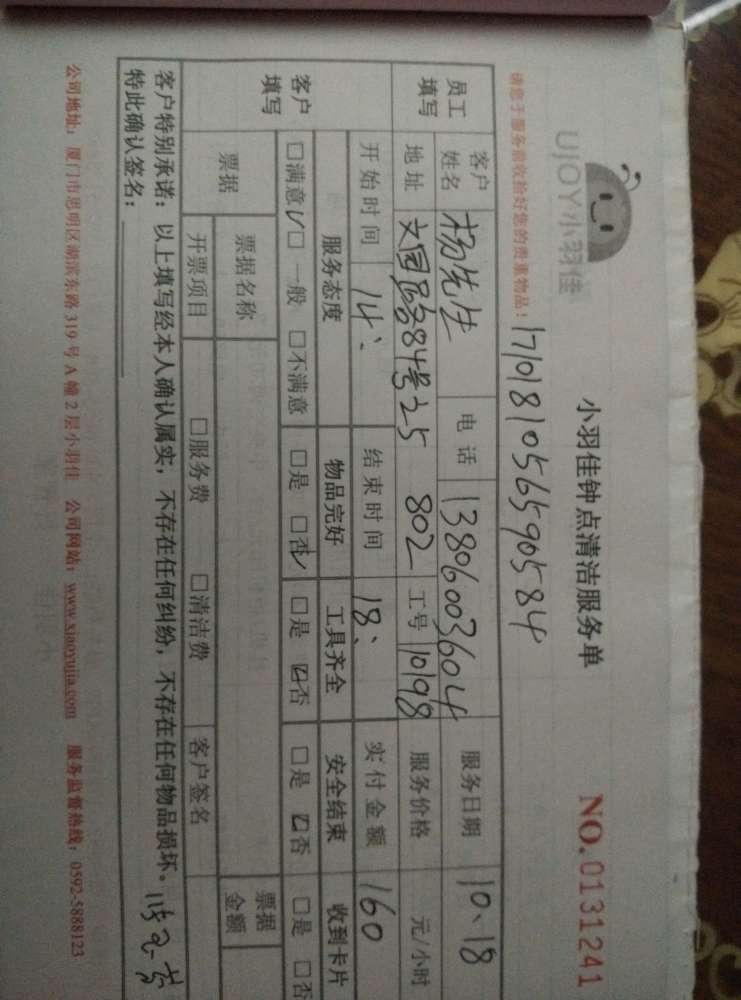 UJOY小羽佳
小羽佳钟点清洁服务单
NO.0131241
请您于服务前收拾好您的贵重物品！
1710181056590584
员工填写 客户姓名 杨先生 电话 13806003604 服务日期 10、18
地址 文园路84号25 802 工号 10198 服务价格 元/小时
开始时间 14、 结束时间 18、 实付金额 160
客户填写 服务态度 物品完好 工具齐全 安全结束 收到卡片
□满意√□一般 □不满意 □是 □否√ □是 □否 □是 □否 □是 □否
票据 票据名称 票据金额
开票项目 □服务费 □清洁费 客户签名
客户特别承诺：以上填写经本人确认属实，不存在任何纠纷，不存在任何物品损坏。
特此确认签名：
公司地址：厦门市思明区湖滨东路319号A幢2层小羽佳 公司网站：www.xiaoyujia.com 服务监督热线：0592-5888123